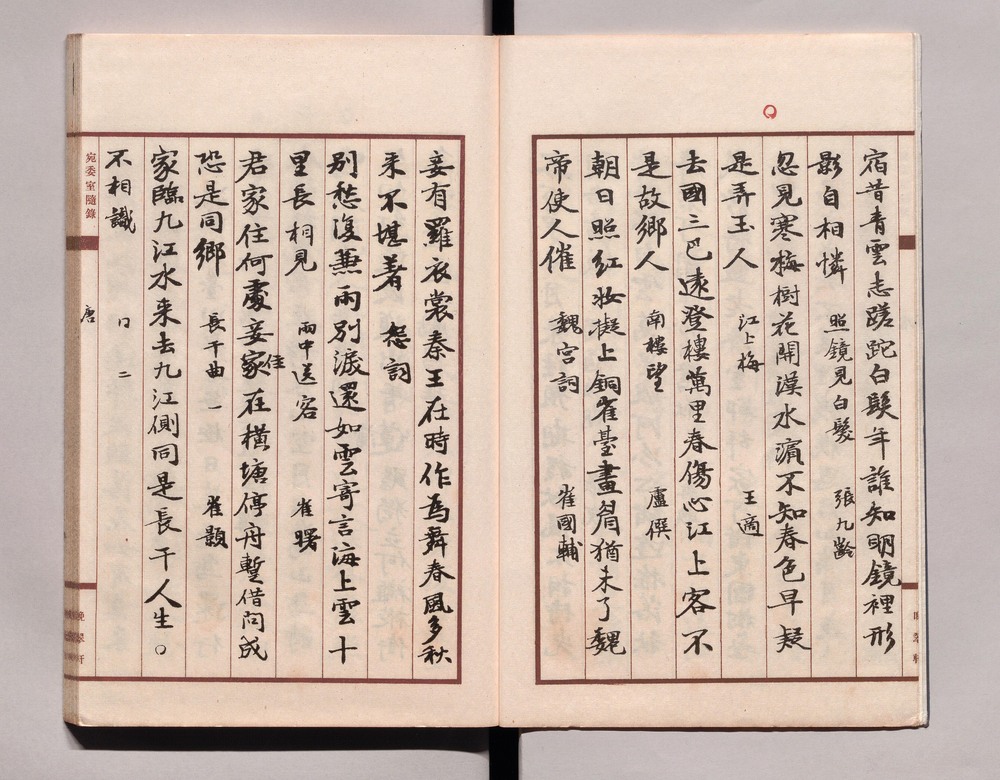 宿昔青雲志蹉跎白髮年誰知明鏡裡形
影自相憐 照鏡見白髮 張九齡
忽見寒梅樹花開漢水濱不知春色早疑
是弄玉人 江上梅 王適
去國三巴遠登樓萬里春傷心江上客不
是故鄉人 南樓望 盧僎
朝日照紅妝擬上銅雀臺畫眉猶未了魏
帝使人催 魏宮詞 崔國輔
妾有羅衣裳秦王在時作為舞春風多秋
来不堪著 怨詞
別愁復兼雨別淚還如雲寄言海上雲十
里長相見 雨中送客 崔曙
君家住何處妾家住在橫塘停舟暫借问或
恐是同鄉 長干曲 一 崔顥
家臨九江水来去九江側同是長干人生。
不相識 二
唐
宛委室隨錄
晚翠軒